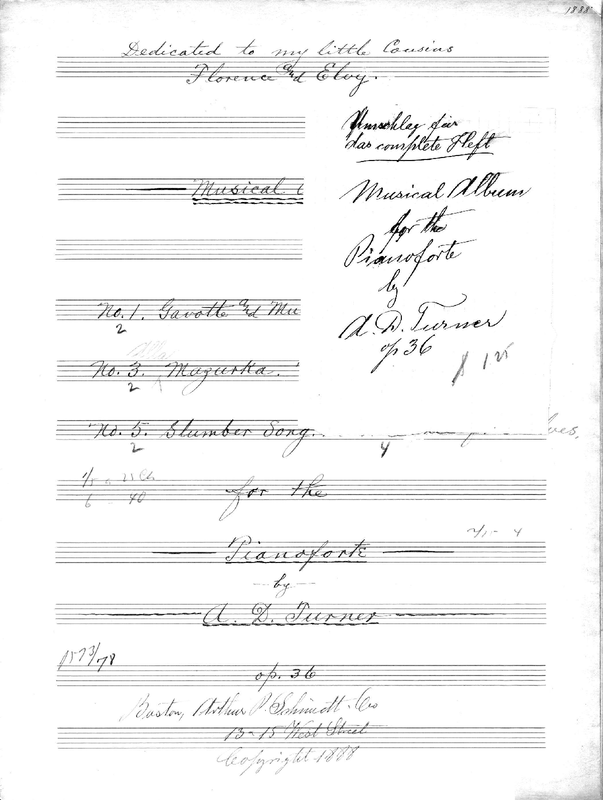 1888
Dedicated to my little Cousins
Florence and Elvy.
Umschlag für
das complete Heft
Musical
Musical Album
for the
Pianoforte
by
A. D. Turner
op 36
No. 1. Gavotte and Mu
2
No. 3. Mazurka.
2
No. 5. Slumber Song.
2
4
for the
6 - 40
Pianoforte
by
A. D. Turner
op. 36
Boston, Arthur P. Schmidt & Co
13-15 West Street
Copyright 1888